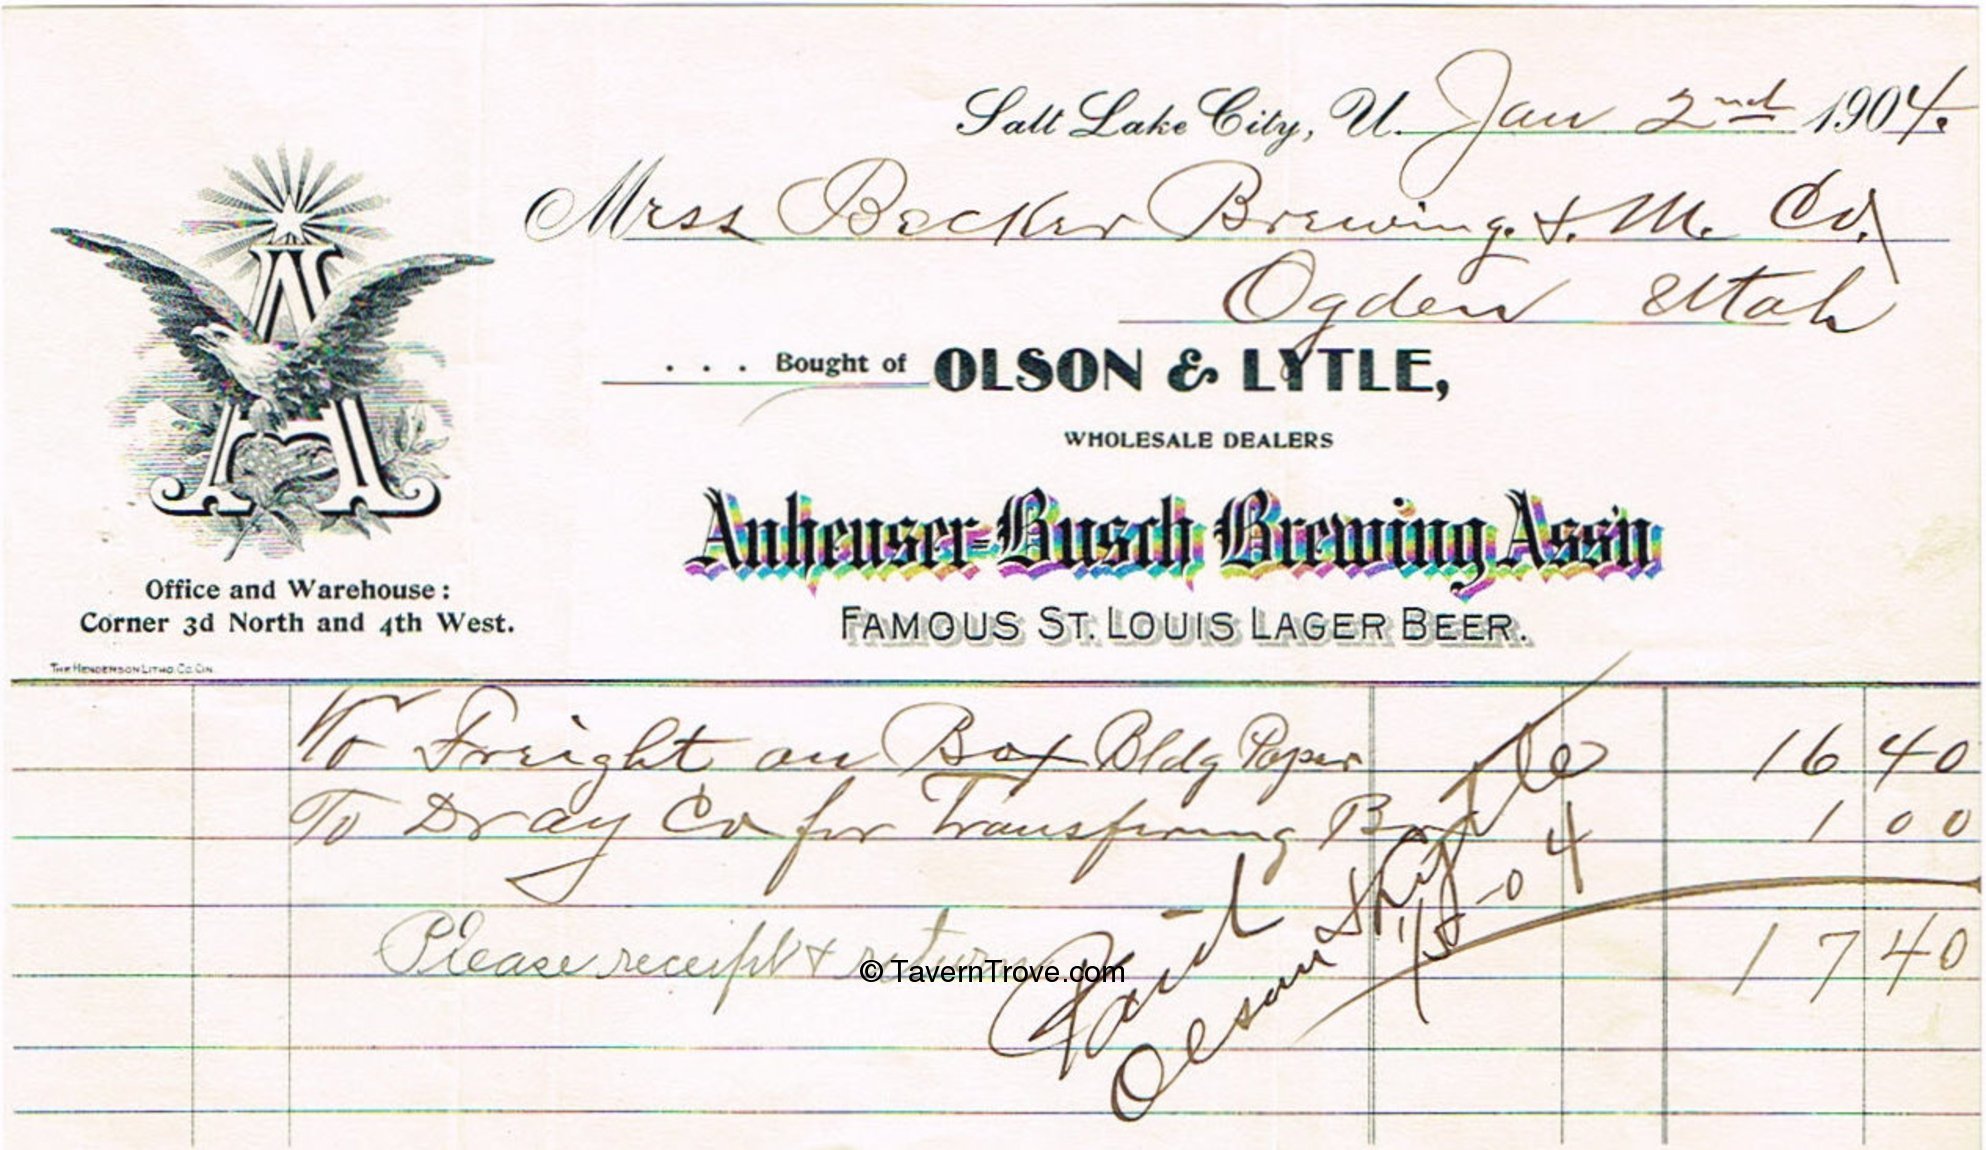 Salt Lake City, U. Jan 2nd 1904.
Mess Becker Brewing. & M. Co.
Ogden Utah
. . . Bought of OLSON & LYTLE,
WHOLESALE DEALERS
Anheuser-Busch Brewing Ass'n
FAMOUS ST. LOUIS LAGER BEER.
A
Office and Warehouse:
Corner 3d North and 4th West.
THE HENDERSON LITHO. CO. CIN.
To Freight on Box Bldg Paper 16 40
To Dray Co for Transfering Box 1 00
Please receipt & return 17 40
Paid
Olson & Lytle
1/5-04
© TavernTrove.com